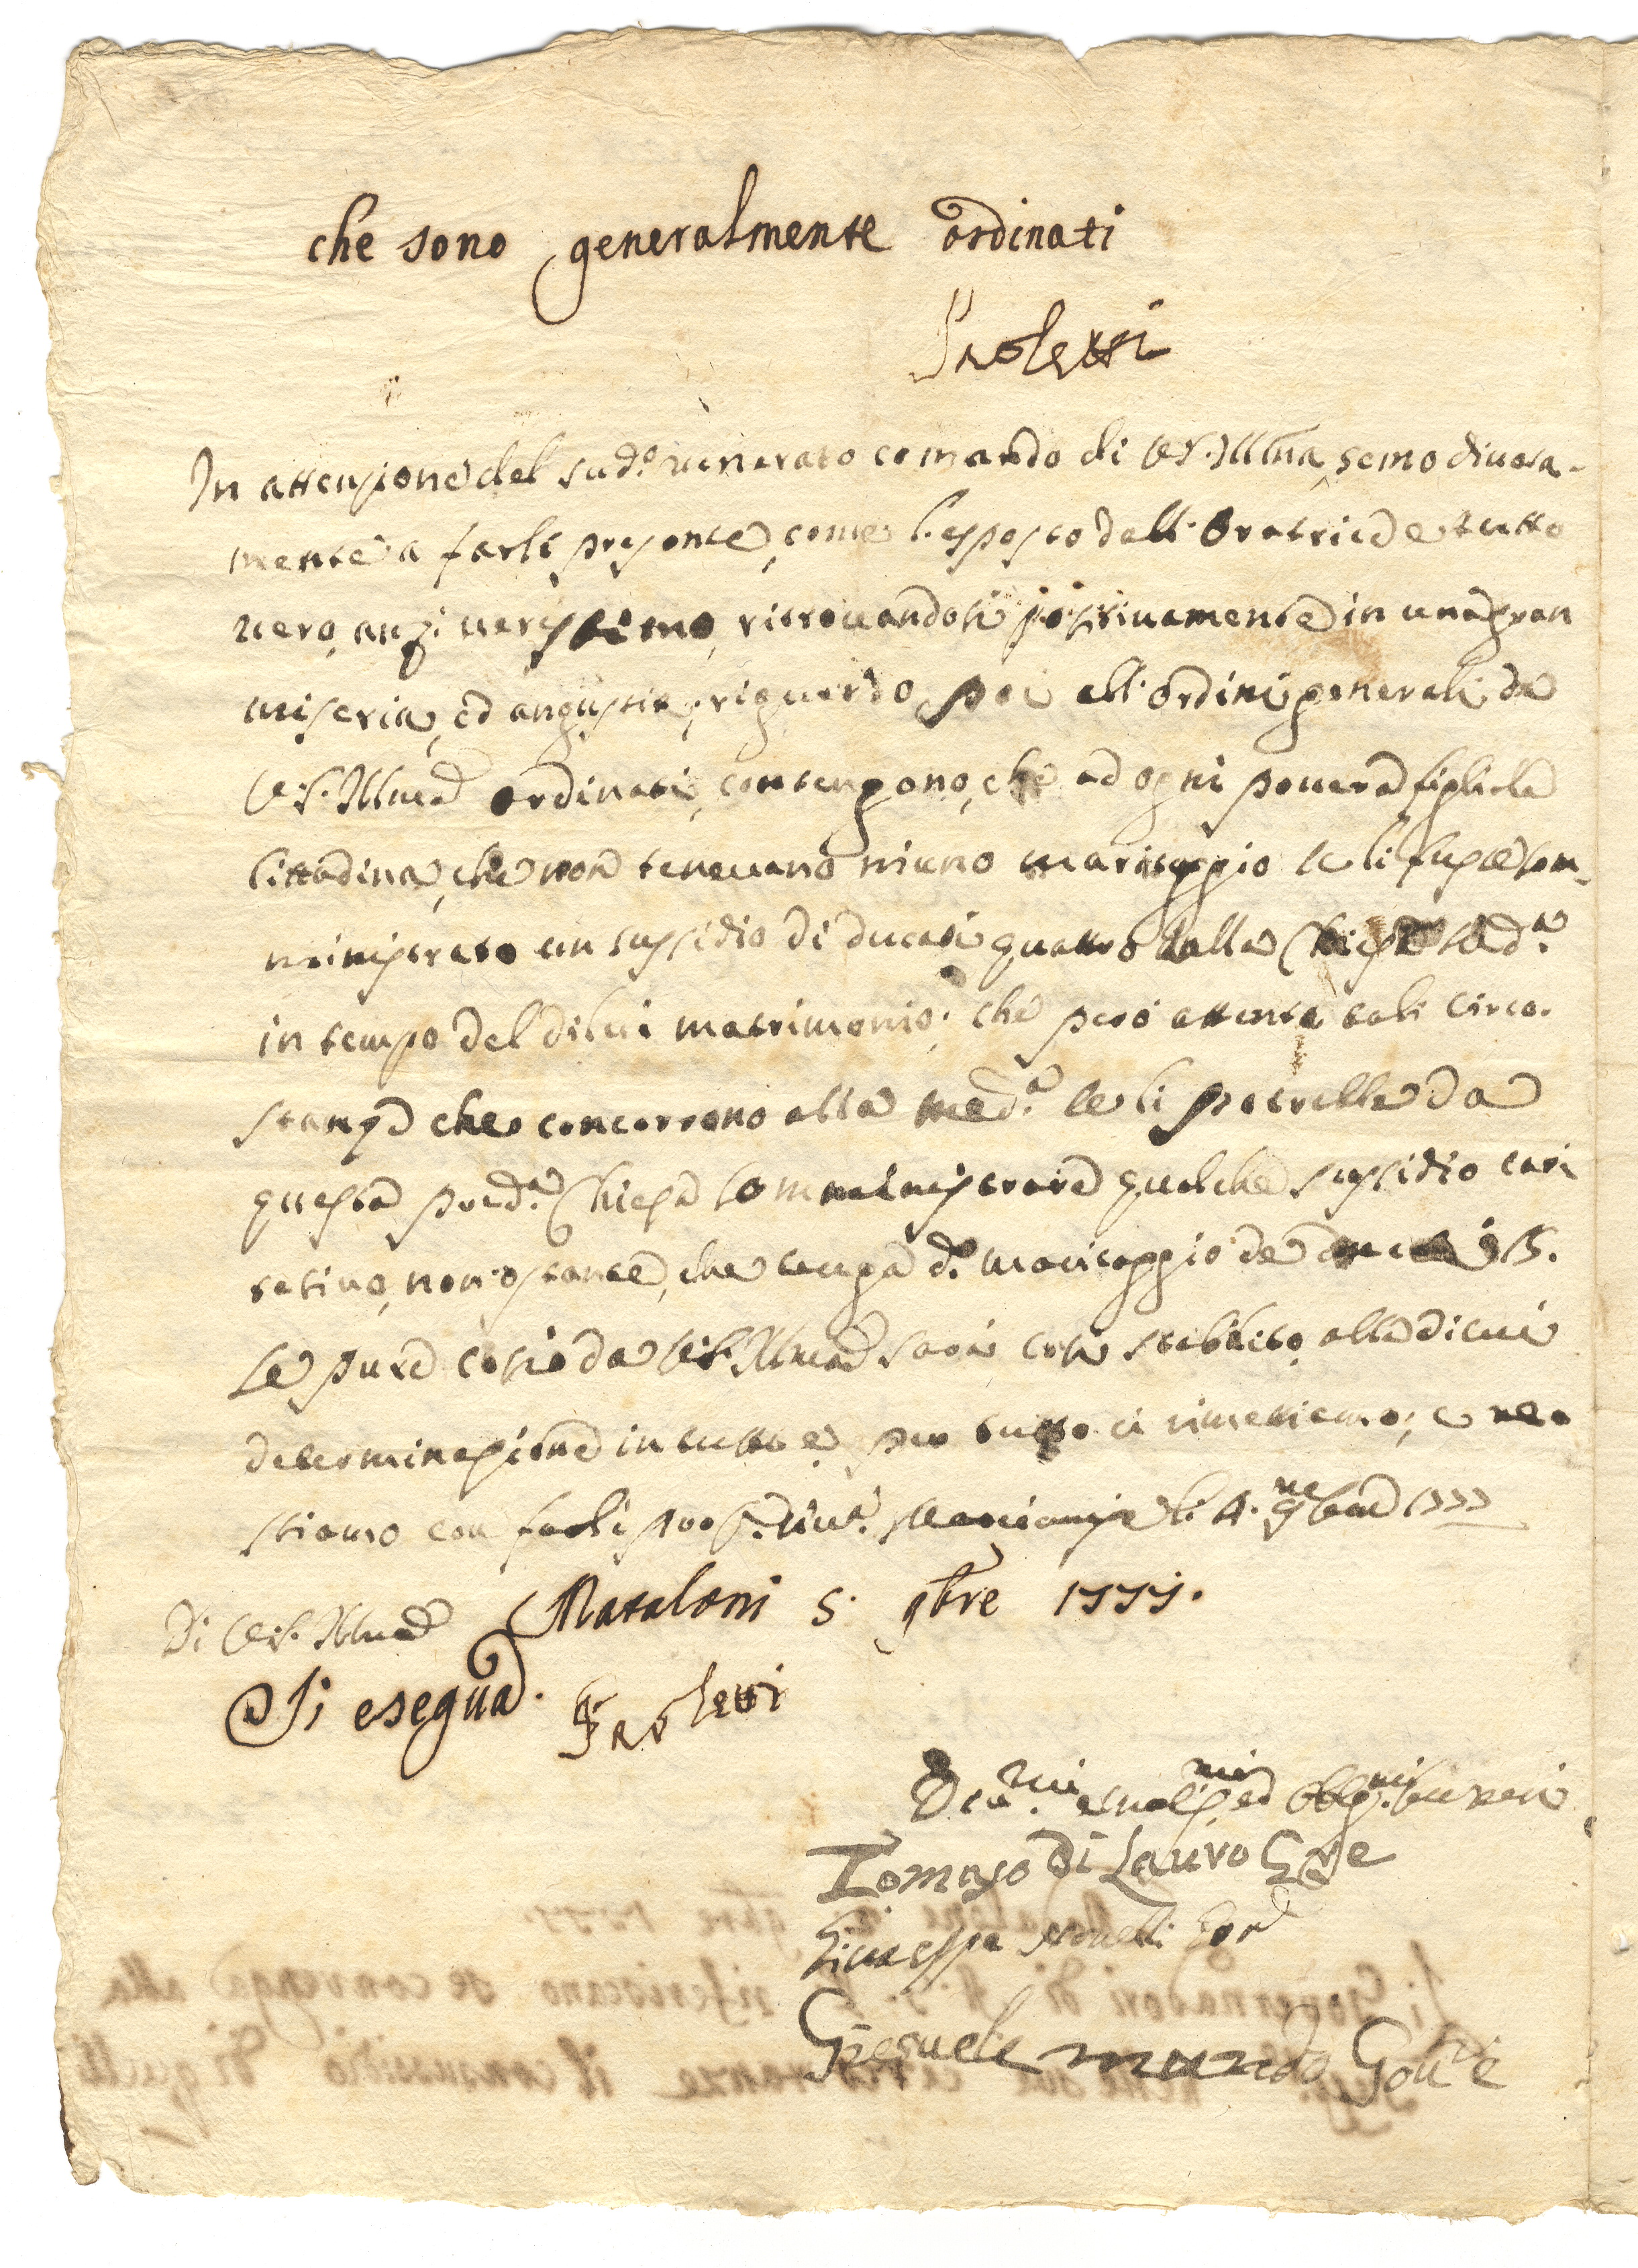 che sono generalmente ordinati
Paoletti
In attenzione del sud.o venerato comando di V.S. Illma, semo divota-
mente a farli presente, come l'esposto dell'Oratrice è tutto
vero, anzi verissimo, ritrovandosi positivamente in una gran
miseria, ed angustia, riguardo poi all'ordini generali da
V.S. Illma ordinati, contengono, che ad ogni povera figliola
Cittadina, che non tenevano niuno maritaggio se li fusse som-
ministrato un sussidio di ducati quattro dalla Chiesa sud.a
in tempo del di lui matrimonio; che però attenta tali circo-
stanze che concorrono alla med.a se li potrebbe da
questa pred.a Chiesa somministrare qualche sussidio cari
tativo, non ostante, che tenga d.o maritaggio de 15.
Se pure così da V.S. Illma sarà così stabilito, alla di cui
determinazione in tutto e per tutto ci rimettiamo; e re
stiamo con farli li 4. 9bre 1777
Di V.S. Illma
Mataloni 5. 9bre 1777.
Si esegua. Paoletti
Tomaso Di Lauro
Giuseppe
Giesuele mundo